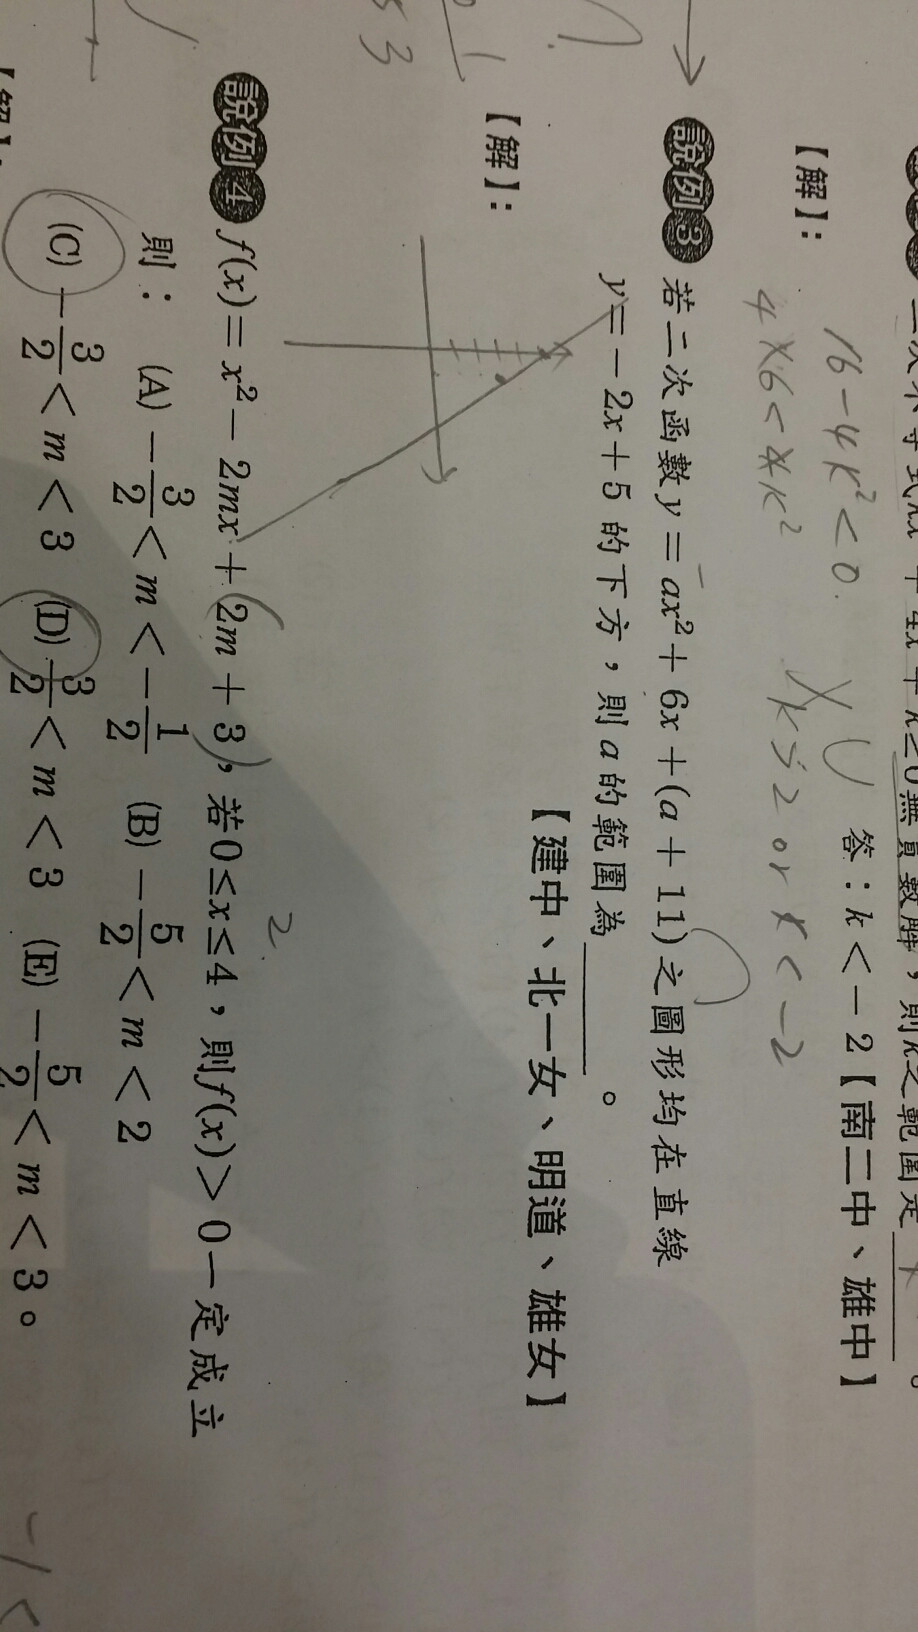 二次不等式kx² + 4x + k ≤ 0無實數解，則k之範圍是
答：k < −2【南二中、雄中】
【解】：
16 − 4k² < 0
4×6 < 4k²
k > 2 or k < −2
說例3 若二次函數 y = ax² + 6x + (a + 11)之圖形均在直線
y = −2x + 5 的下方，則a的範圍為______。
【建中、北一女、明道、雄女】
【解】：
2
說例4 f(x) = x² − 2mx + (2m + 3)，若0≤x≤4，則f(x) > 0一定成立
則： (A) −3/2 < m < −1/2 (B) −5/2 < m < 2
(C) −3/2 < m < 3 (D) 3/2 < m < 3 (E) −5/2 < m < 3。
【解】：
−1 <